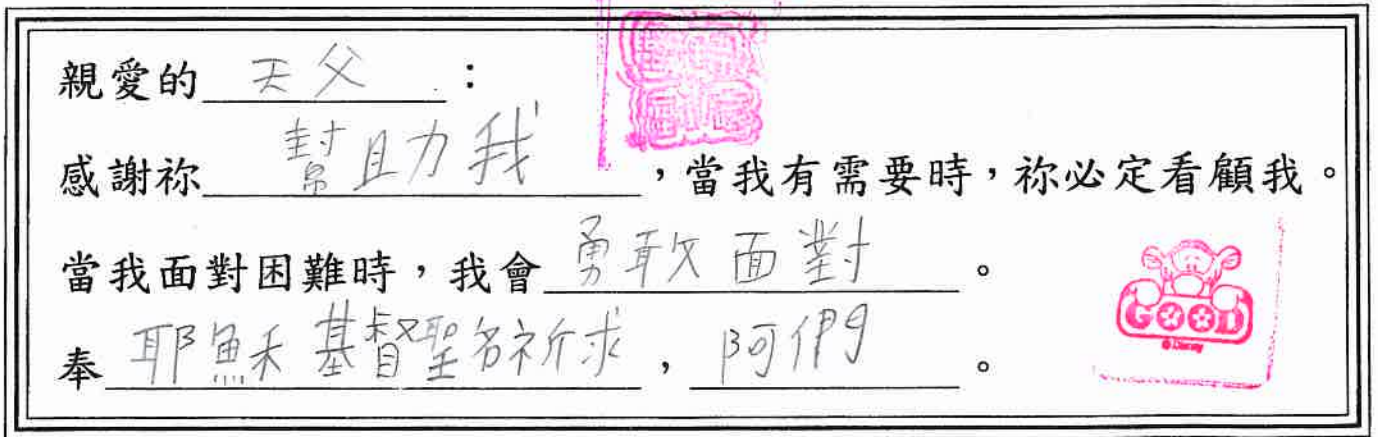 親愛的 天父 :
感謝祢 幫助我 ,當我有需要時,祢必定看顧我。
當我面對困難時,我會 勇敢面對 。
奉 耶穌基督聖名祈求 , 阿們 。
GOOD
©Disney